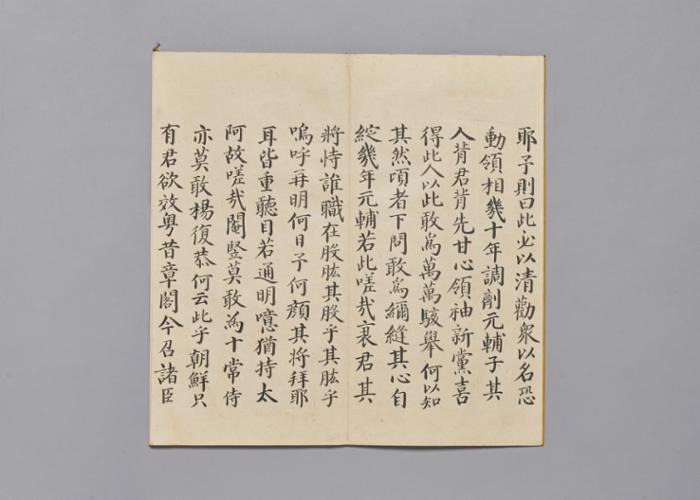 耶予則曰此必以清勸衆以名恐
動領相幾十年調劑元輔子其
人背君背先甘心領袖新黨喜
得此人以此敢爲萬萬駭舉何以知
其然頃者下問敢爲彌縫其心自
綻幾年元輔若此嗟哉衰君其
將恃誰職在股肱其股乎其肱乎
嗚呼再明何日予何顔其將拜耶
耳皆重聽目若通明噫猶持太
阿故嗟哉閹竪莫敢爲十常侍
亦莫敢楊復恭何云此乎朝鮮只
有君欲效粤昔章閣今召諸臣